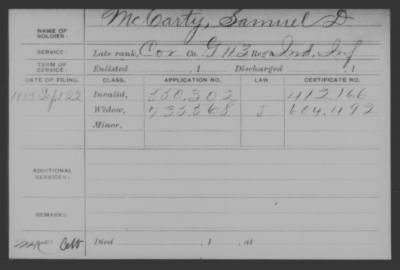 NAME OF SOLDIER: McCarty, Samuel D
SERVICE: Late rank, Cor Co. G 43 Reg't Ind. Inf
TERM OF SERVICE: Enlisted , 1 Discharged , 1
DATE OF FILING. CLASS. APPLICATION NO. LAW CERTIFICATE NO.
Sept 22 Invalid, 550.302 412.166
Widow, 735.568 J 604.492
Minor,
ADDITIONAL SERVICES:
REMARKS:
Died , 1 , at